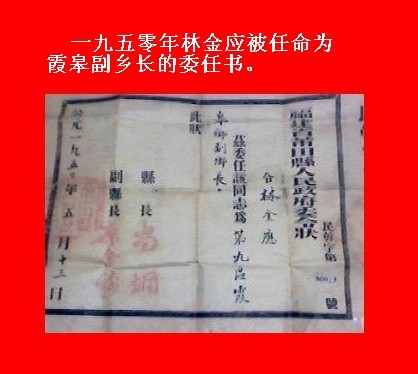 一九五零年林金应被任命为
霞皋副乡长的委任书。
福建省莆田縣人民政府委令狀
民幹字第
號
令林金應
茲委任該同志為第九區霞
皋鄉副鄉長。
此狀
縣長
副縣長
公元一九五〇年五月十三日